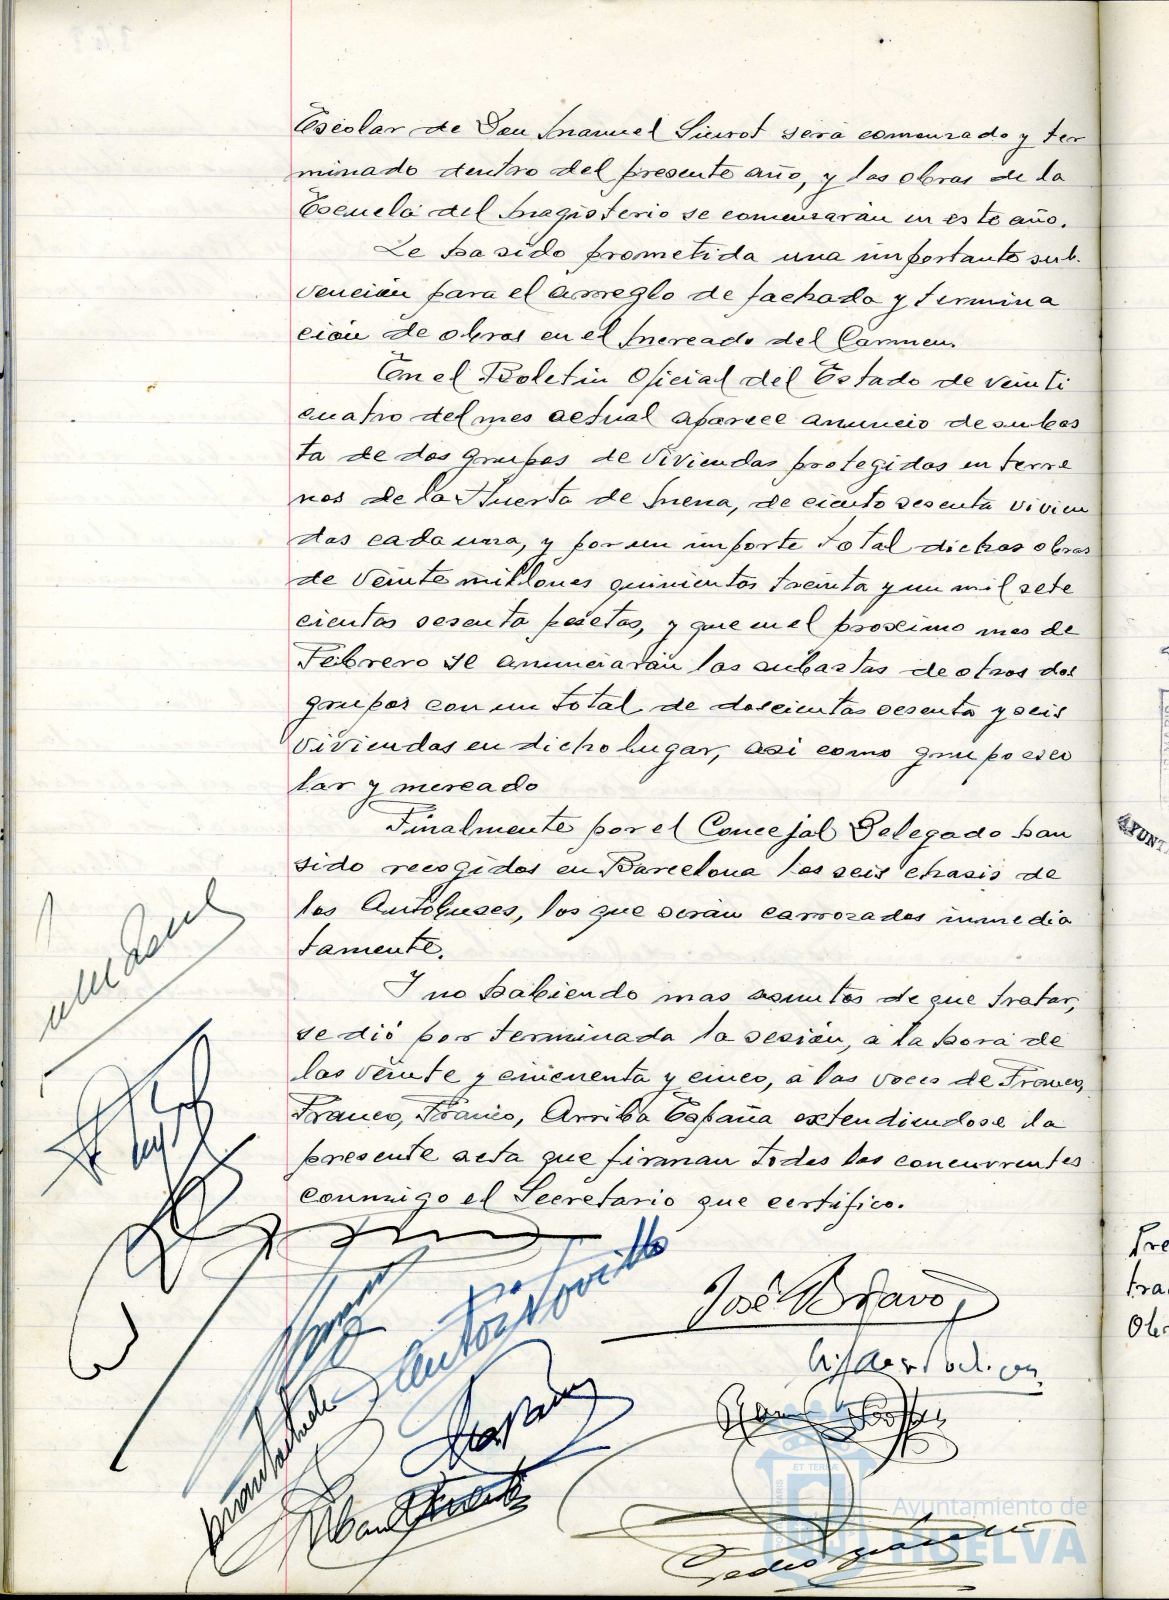 Escolar de Don Manuel Siurot será comenzado y ter
minado dentro del presente año, y las obras de la
Escuela del Magisterio se comenzarán en este año.
Le ha sido prometida una importante sub-
vención para el arreglo de fachada y termina
ción de obras en el Mercado del Carmen.
En el Boletin Oficial del Estado de veinti
cuatro del mes actual aparece anuncio de subas
ta de dos grupos de viviendas protegidas en terre
nos de la Huerta de Mena, de ciento sesenta vivien
das cada una, y por un importe total dichas obras
de veinte millones quinientas treinta y un mil sete
cientas sesenta pesetas, y que en el proximo mes de
Febrero se anunciarán las subastas de otros dos
grupos con un total de doscientas sesenta y seis
viviendas en dicho lugar, asi como grupo esco
lar y mercado
Finalmente por el Concejal Delegado han
sido recogidos en Barcelona los seis chasis de
los Autobuses, los que serán carrozados inmedia
tamente.
Y no habiendo mas asuntos de que tratar,
se dió por terminada la sesión, a la hora de
las veinte y cincuenta y cinco, a las voces de Franco,
Franco, Franco, Arriba España extendiendose la
presente acta que firman todos los concurrentes
conmigo el Secretario que certifico.
José Bravo
Pedro
Ayuntamiento de
HUELVA
AYUNT
Pre
tra